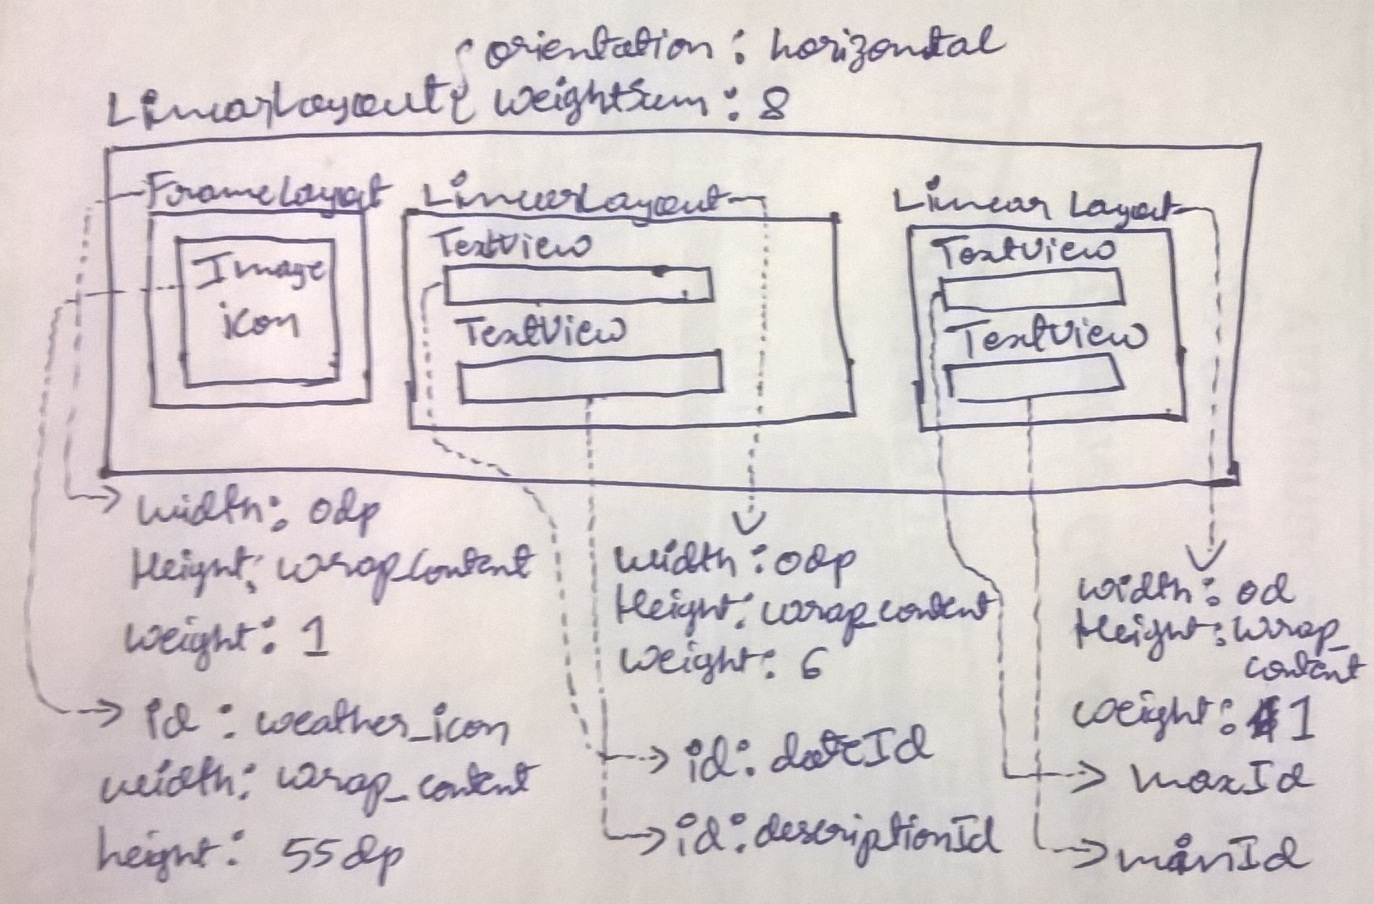 orientation : horizontal
LinearLayout { weightSum : 8
FrameLayout
LinearLayout
Linear Layout
Image
icon
TextView
TextView
TextView
TextView
width: 0dp
Height: wrap_content
weight: 1
id : weather_icon
width: wrap_content
height: 55dp
width : 0dp
Height: wrap_content
weight: 6
id: dateId
id: descriptionId
width: 0d
Height: wrap_
content
weight: 1
maxId
minId